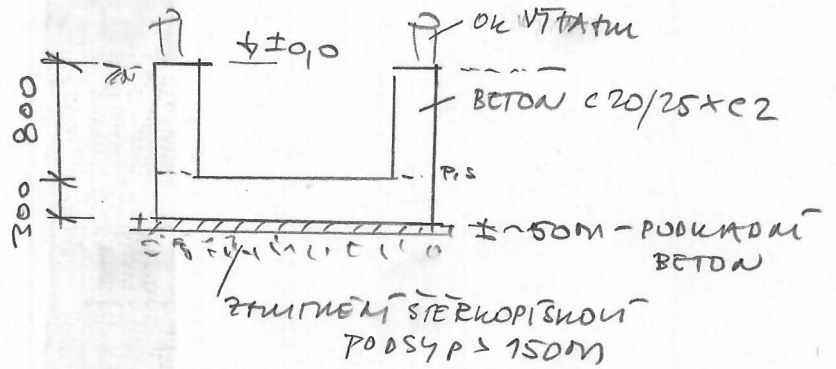 OK VÝTAHU
±0,0
BETON C20/25 XC2
800
P.S
300
~50M - PODKLADNÍ
BETON
ZHUTNĚNÍ ŠTĚRKOPÍSKOVÝ
PODSYP 150M